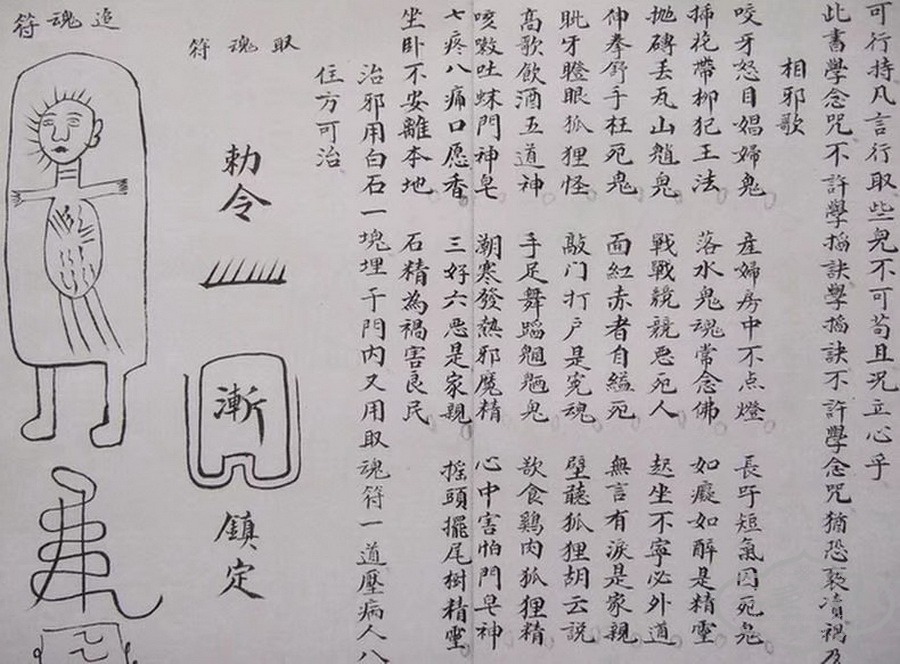 可行持凡言行取些鬼不可苟且况立心乎
此書學念咒不許學搯訣學搯訣不許學念咒猶恐褻瀆禍及
相邪歌
咬牙怒目娼婦鬼 產婦房中不点燈 長吁短氣因死鬼
插花帶柳犯王法 落水鬼魂常念佛 如癡如醉是精靈
抛磚丢瓦山魈鬼 戰戰競競惡死人 起坐不寧必外道
伸拳舒手枉死鬼 面紅赤者自縊死 無言有淚是家親
眦牙瞪眼狐狸怪 敲门打户是冤魂 壁聽狐狸胡云說
高歌飲酒五道神 手足舞蹈魍魎鬼 欲食鷄肉狐狸精
咳嗽吐蛛門神皂 潮寒發熱邪魔精 心中害怕門皂神
七疼八痛口愿香 三好六惡是家親 摇頭擺尾樹精靈
坐卧不安離本地 石精為禍害良民
治邪用白石一塊埋于門内又用取魂符一道壓病人八
住方可治
取魂符
勅令
漸
鎮定
追魂符